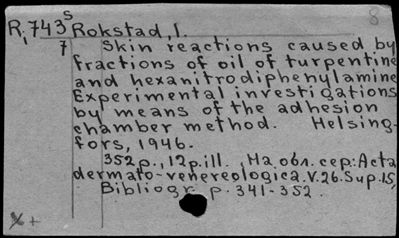 8
R,743 s Rokstad, I.
7 Skin reactions caused by
fractions of oil of turpentine
and hexanitrodiphenylamine
Experimental investigations
by means of the adhesion
chamber method. Helsing-
fors, 1946.
352p., 12p.ill. , На обл. сер: Acta
dermato-venereologica. V. 26. Sup. 15,
Bibliogr. p. 341-352.